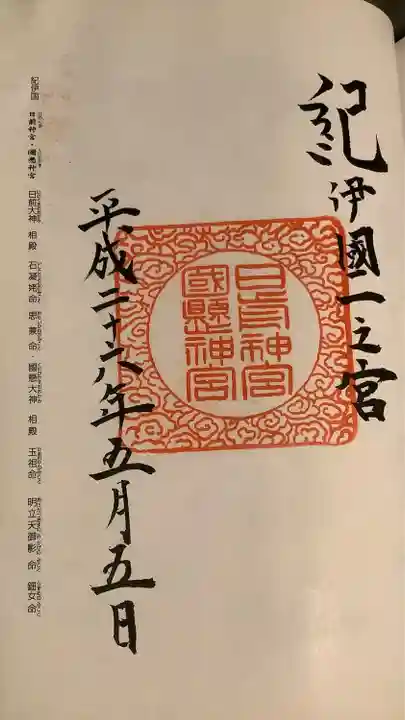 紀伊國一之宮
日前神宮
國懸神宮
平成二十六年五月五日
紀伊国 日前神宮・國懸神宮 日前大神 相殿 石凝姥命 思兼命・國懸大神 相殿 玉祖命 明立天御影命 鈿女命